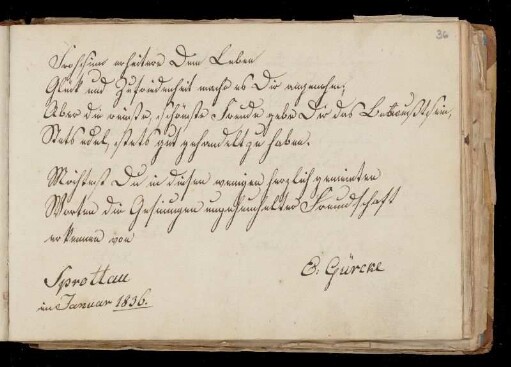 36
Frohsinn erheitere Dein Leben
Glük und Zufriedenheit mach es Dir angenehm;
Aber die reinste, schönste Freude gebe Dir das Bewußtsein,
Stets edel, stets gut gehandelt zu haben.
Möchtest Du in diesen wenigen herzlich gemeinten
Worten die Gesinnungen ungeheuchelter Freundschaft
erkennen von
E. Gürcke
Sprottau
im Januar 1836.